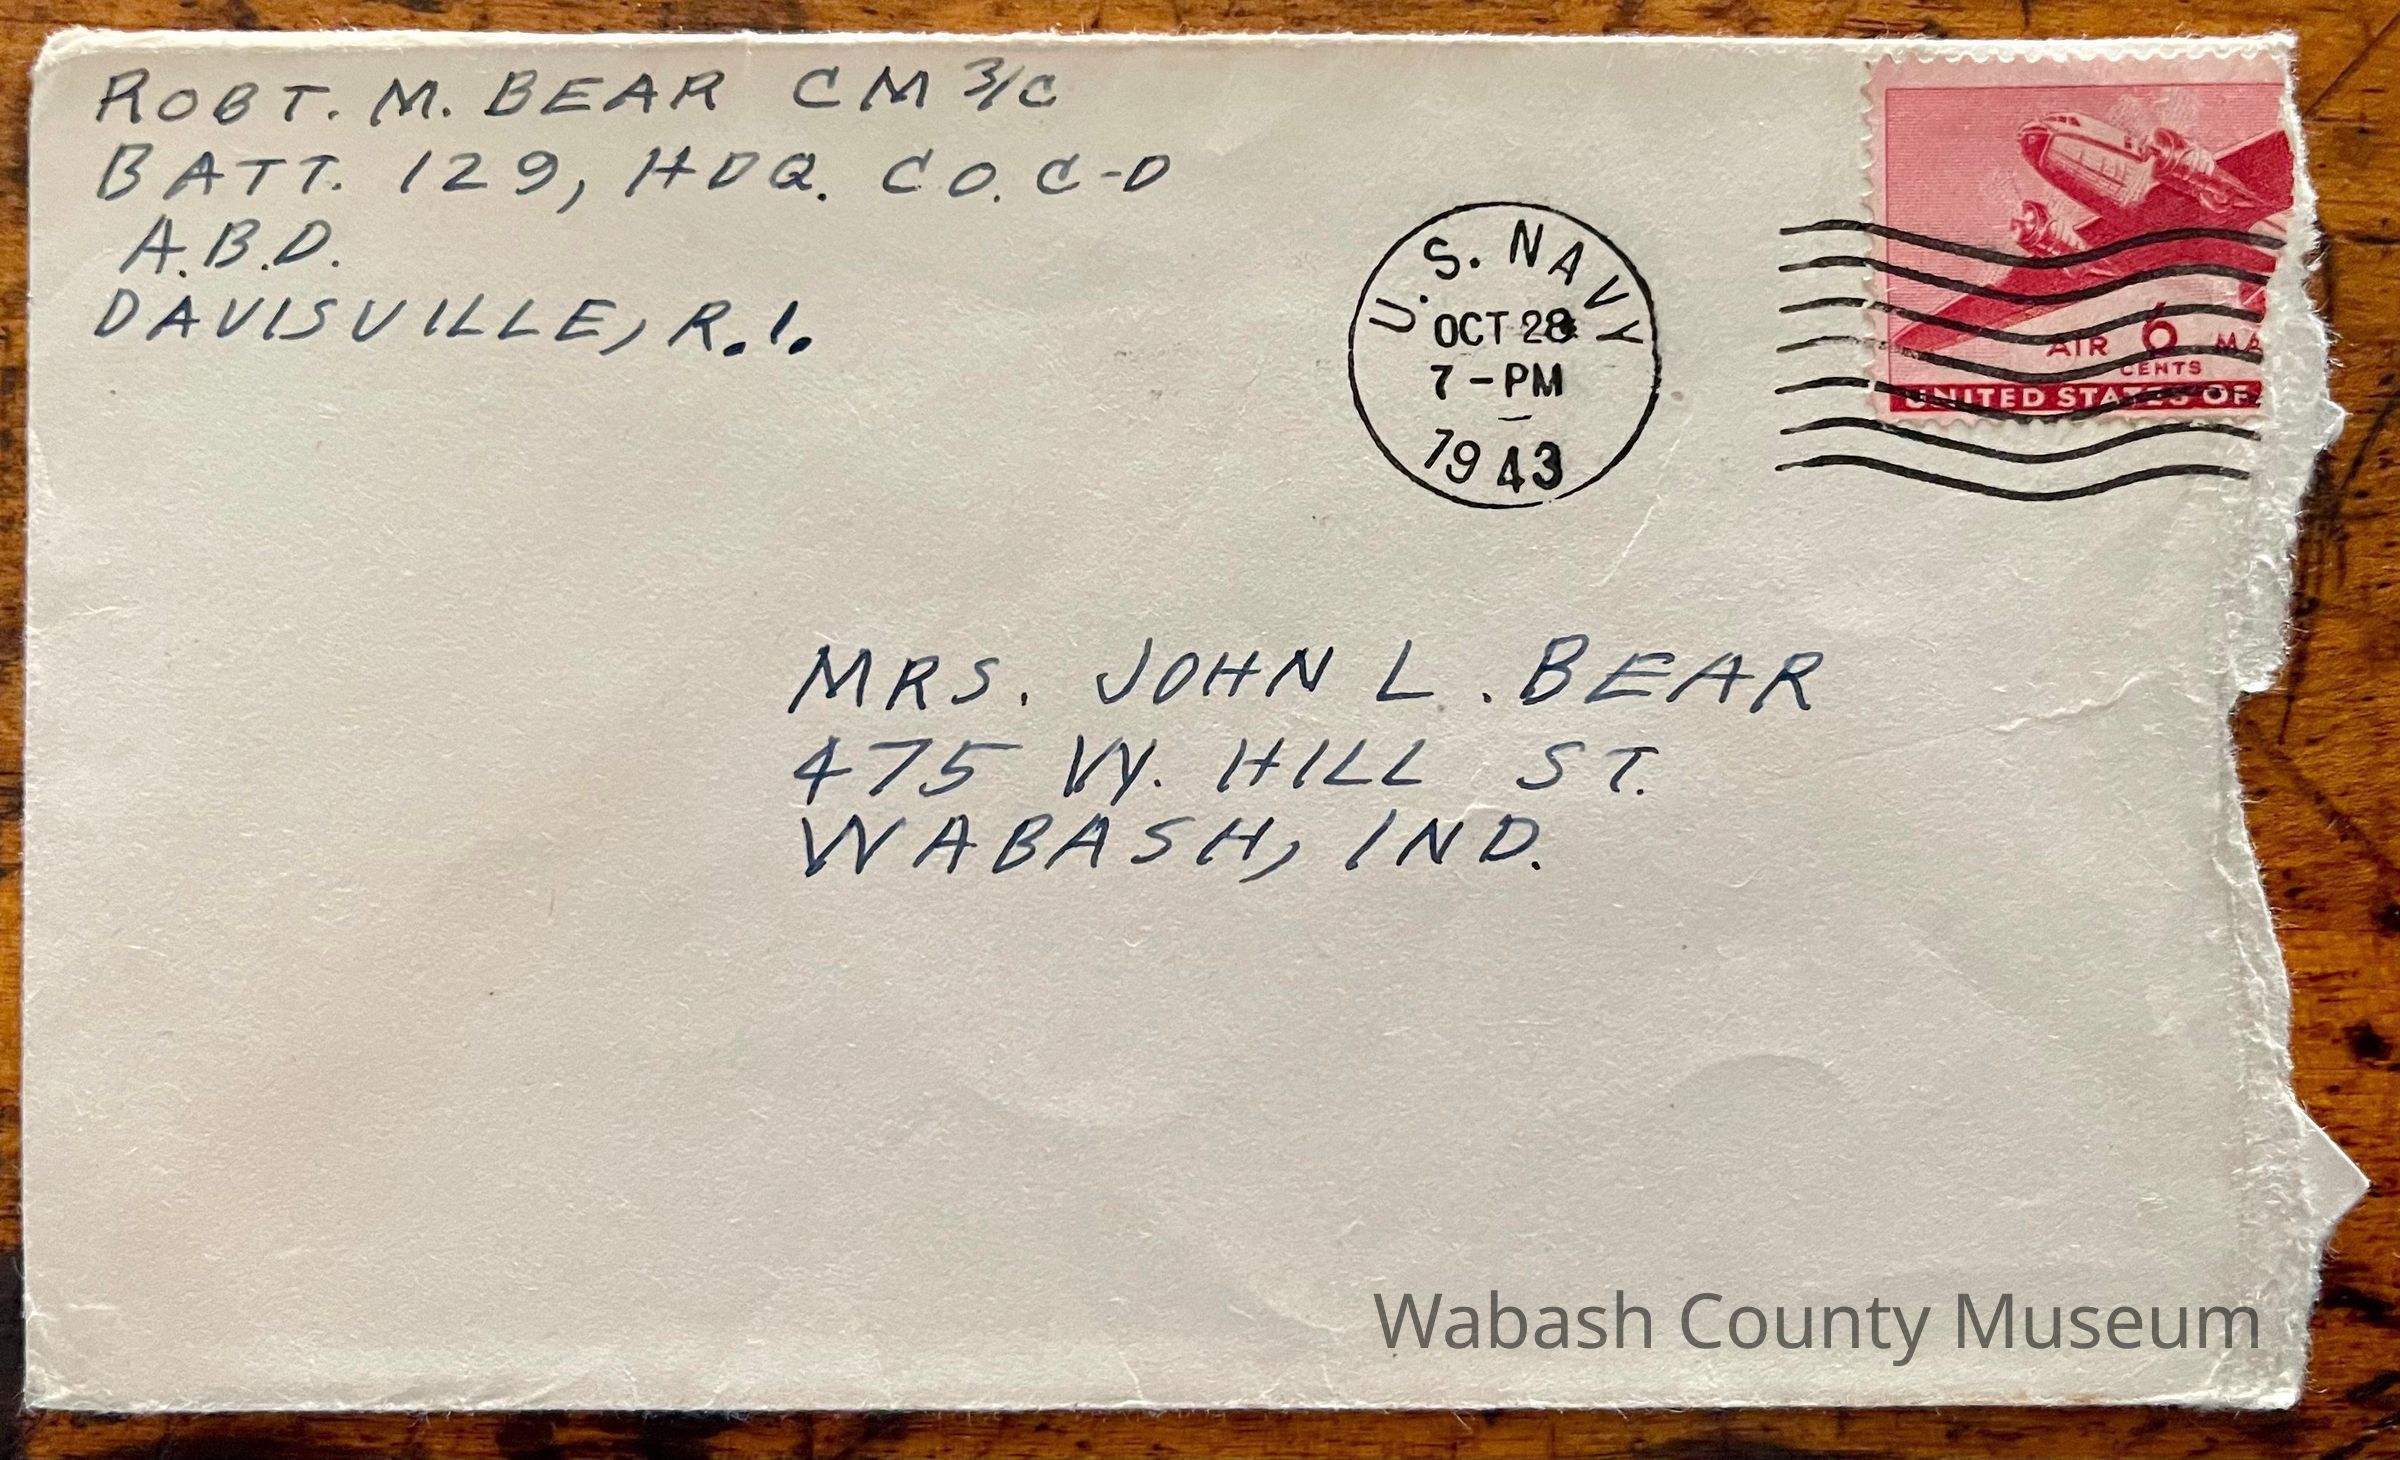 ROBT. M. BEAR CM 3/C
BATT. 129, HDQ. CO. C-D
A.B.D.
DAVISVILLE, R.I.
U.S. NAVY
OCT 28
7-PM
1943
AIR 6 MA
CENTS
UNITED STATES OF
MRS. JOHN L. BEAR
475 W. HILL ST.
WABASH, IND.
Wabash County Museum